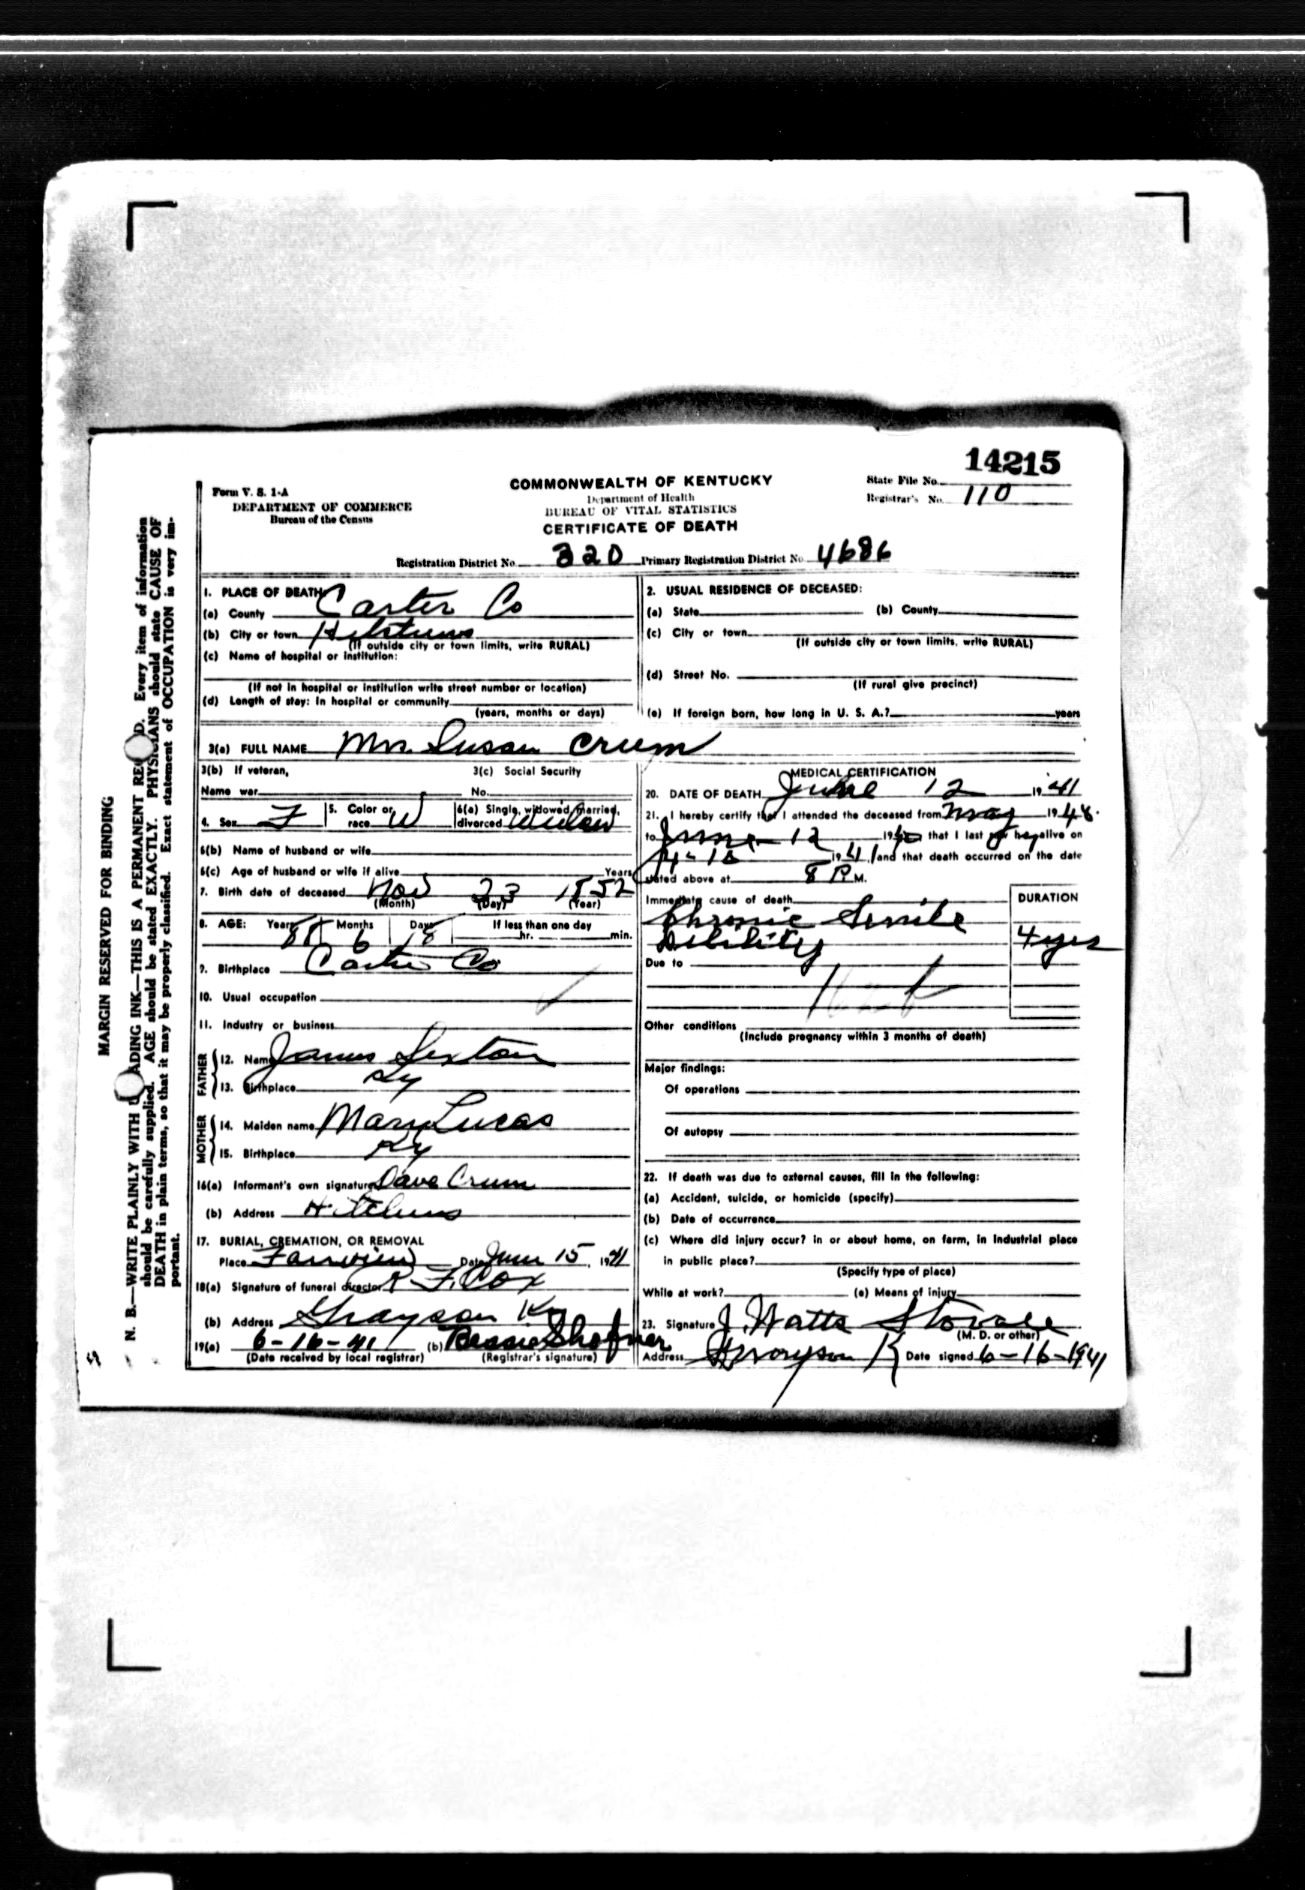 14215
Form V. S. 1-A
DEPARTMENT OF COMMERCE
Bureau of the Census
COMMONWEALTH OF KENTUCKY
Department of Health
BUREAU OF VITAL STATISTICS
CERTIFICATE OF DEATH
State File No.
Registrar's No. 110
Registration District No. 320 Primary Registration District No. 4686
1. PLACE OF DEATH
(a) County Carter Co
(b) City or town
(If outside city or town limits, write RURAL)
(c) Name of hospital or institution:
(If not in hospital or institution write street number or location)
(d) Length of stay: In hospital or community
(years, months or days)
2. USUAL RESIDENCE OF DECEASED:
(a) State (b) County
(c) City or town
(If outside city or town limits, write RURAL)
(d) Street No.
(If rural give precinct)
(e) If foreign born, how long in U. S. A.? years
3(a) FULL NAME Mrs. Susan Crum
3(b) If veteran,
Name war
3(c) Social Security
No.
4. Sex F
5. Color or race W
6(a) Single, widowed, married, divorced Widow
6(b) Name of husband or wife
6(c) Age of husband or wife if alive Years
7. Birth date of deceased Nov 23 1852
(Month) (Day) (Year)
8. AGE: Years 88 Months 6 Days 18 If less than one day
hr. min.
9. Birthplace Carter Co
10. Usual occupation
11. Industry or business
FATHER
12. Name James Sexton
13. Birthplace Ky
MOTHER
14. Maiden name Mary Lucas
15. Birthplace Ky
16(a) Informant's own signature Dave Crum
(b) Address Hitchins
17. BURIAL, CREMATION, OR REMOVAL
Place Fairview Date June 15, 1941
18(a) Signature of funeral director R. F. Cox
(b) Address Grayson Ky
19(a) 6-16-41 (b) Bessie Shofner
(Date received by local registrar) (Registrar's signature)
MEDICAL CERTIFICATION
20. DATE OF DEATH June 12 1941
21. I hereby certify that I attended the deceased from May 19
to June 12 19 that I last saw h alive on
19 41 and that death occurred on the date
stated above at 8 P M.
Immediate cause of death
Chronic Senile
Debility
DURATION
4 yrs
Due to
Other conditions
(Include pregnancy within 3 months of death)
Major findings:
Of operations
Of autopsy
22. If death was due to external causes, fill in the following:
(a) Accident, suicide, or homicide (specify)
(b) Date of occurrence
(c) Where did injury occur? in or about home, on farm, in industrial place
in public place?
(Specify type of place)
While at work? (e) Means of injury
23. Signature J. Watts Stovall
(M. D. or other)
Address Grayson K Date signed 6-16-1941
MARGIN RESERVED FOR BINDING
N. B.—WRITE PLAINLY WITH ADING INK—THIS IS A PERMANENT RE D. Every item of information
should be carefully supplied. AGE should be stated EXACTLY. PHYSICIANS should state CAUSE OF
DEATH in plain terms, so that it may be properly classified. Exact statement of OCCUPATION is very im-
portant.